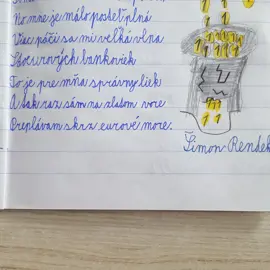 No mne je málo posteľ plná
Viac páči sa mi veľká vlna
Stoeurových bankoviek
To je pre mňa správny liek
A tak raz sám na zlatom vore
Preplávam skrz eurové more.
Šimon Rendek